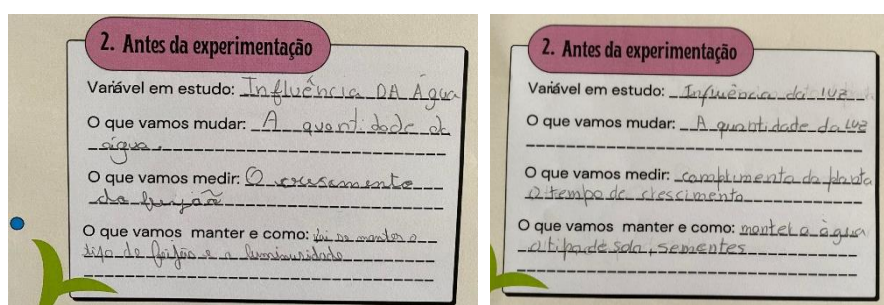 2. Antes da experimentação
Variável em estudo: Influência DA Água
O que vamos mudar: A quantidade de
água.
O que vamos medir: O crescimento
do feijão
O que vamos manter e como: Vai se manter o
tipo de feijão e a luminusidade
2. Antes da experimentação
Variável em estudo: Influência da luz
O que vamos mudar: A quantidade da luz
O que vamos medir: complimento da planta
O tempo de crescimento
O que vamos manter e como: a água
o tipo de solo, sementes